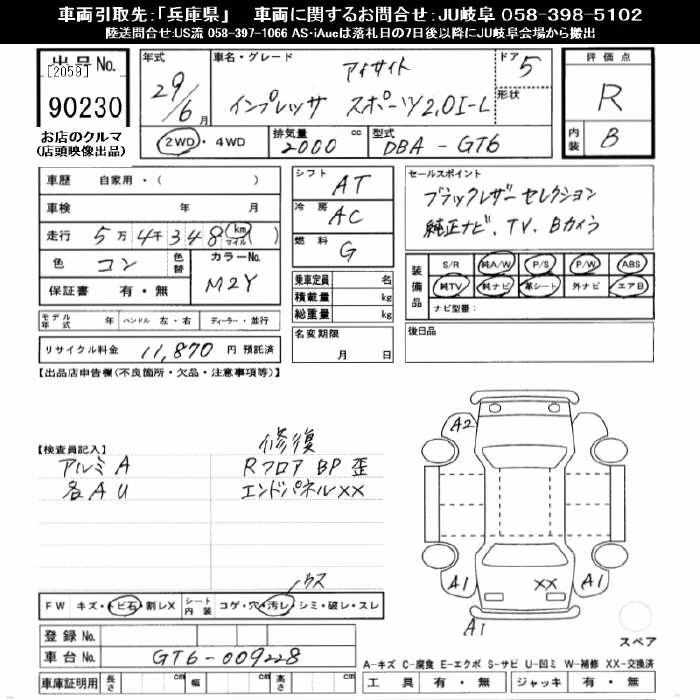 車両引取先:「兵庫県」 車両に関するお問合せ:JU岐阜 058-398-5102
陸送問合せ:US流 058-397-1066 AS-iAucは落札日の7日後以降にJU岐阜会場から搬出
出品No.
[2059]
90230
お店のクルマ
(店頭映像出品)
年式 29/6 月
車名・グレード アイサイト
インプレッサ スポーツ2.0I-L
ドア 5
形状
2WD・4WD
排気量 2000 cc
型式 DBA-GT6
評価点
R
内装 B
車歴 自家用・( )
車検 年 月
走行 5万4千348 km マイル
色 コン 色替 カラーNo. M2Y
保証書 有・無
モデル年式 年 ハンドル 左・右 ディーラー・並行
リサイクル料金 11,870 円 預託済
シフト AT
冷房 AC
燃料 G
乗車定員 名
積載量 kg
総重量 kg
名変期限 月 日
セールスポイント
ブラックレザーセレクション
純正ナビ、TV、Bカメラ
装備品 S/R 純A/W P/S P/W ABS
純TV 純ナビ 革シート 外ナビ エアB
ナビ型番:
後日品
【出品店申告欄(不良箇所・欠品・注意事項等)】
【検査員記入】 修復
アルミA RフロアBP歪
各AU エンドパネルXX
ウス
FW キズ・トビ石・割レX シート内装 コゲ・穴・汚レ・シミ・破レ・スレ
登録No.
車台No. GT6-009228
車庫証明用 長さ cm 幅 cm 高さ cm
A2
A1 XX A1
A1
スペア
A-キズ C-腐食 E-エクボ S-サビ U-凹ミ W-補修 XX-交換済
工具 有・無 ジャッキ 有・無